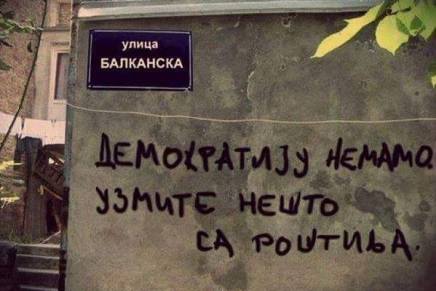 улица
БАЛКАНСКА
ДЕМОКРАТИЈУ НЕМАМО.
УЗМИТЕ НЕШТО
СА РОШТИЉА.